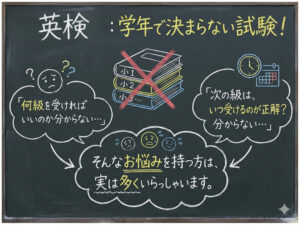 英検 : 学年で決まらない試験!
「何級を受ければ
いいのか分からない…」
小1
小2
小3
「次の級は、
いつ受けるのが正解?
分からない…」
そんなお悩みを持つ方は、
実は多くいらっしゃいます。